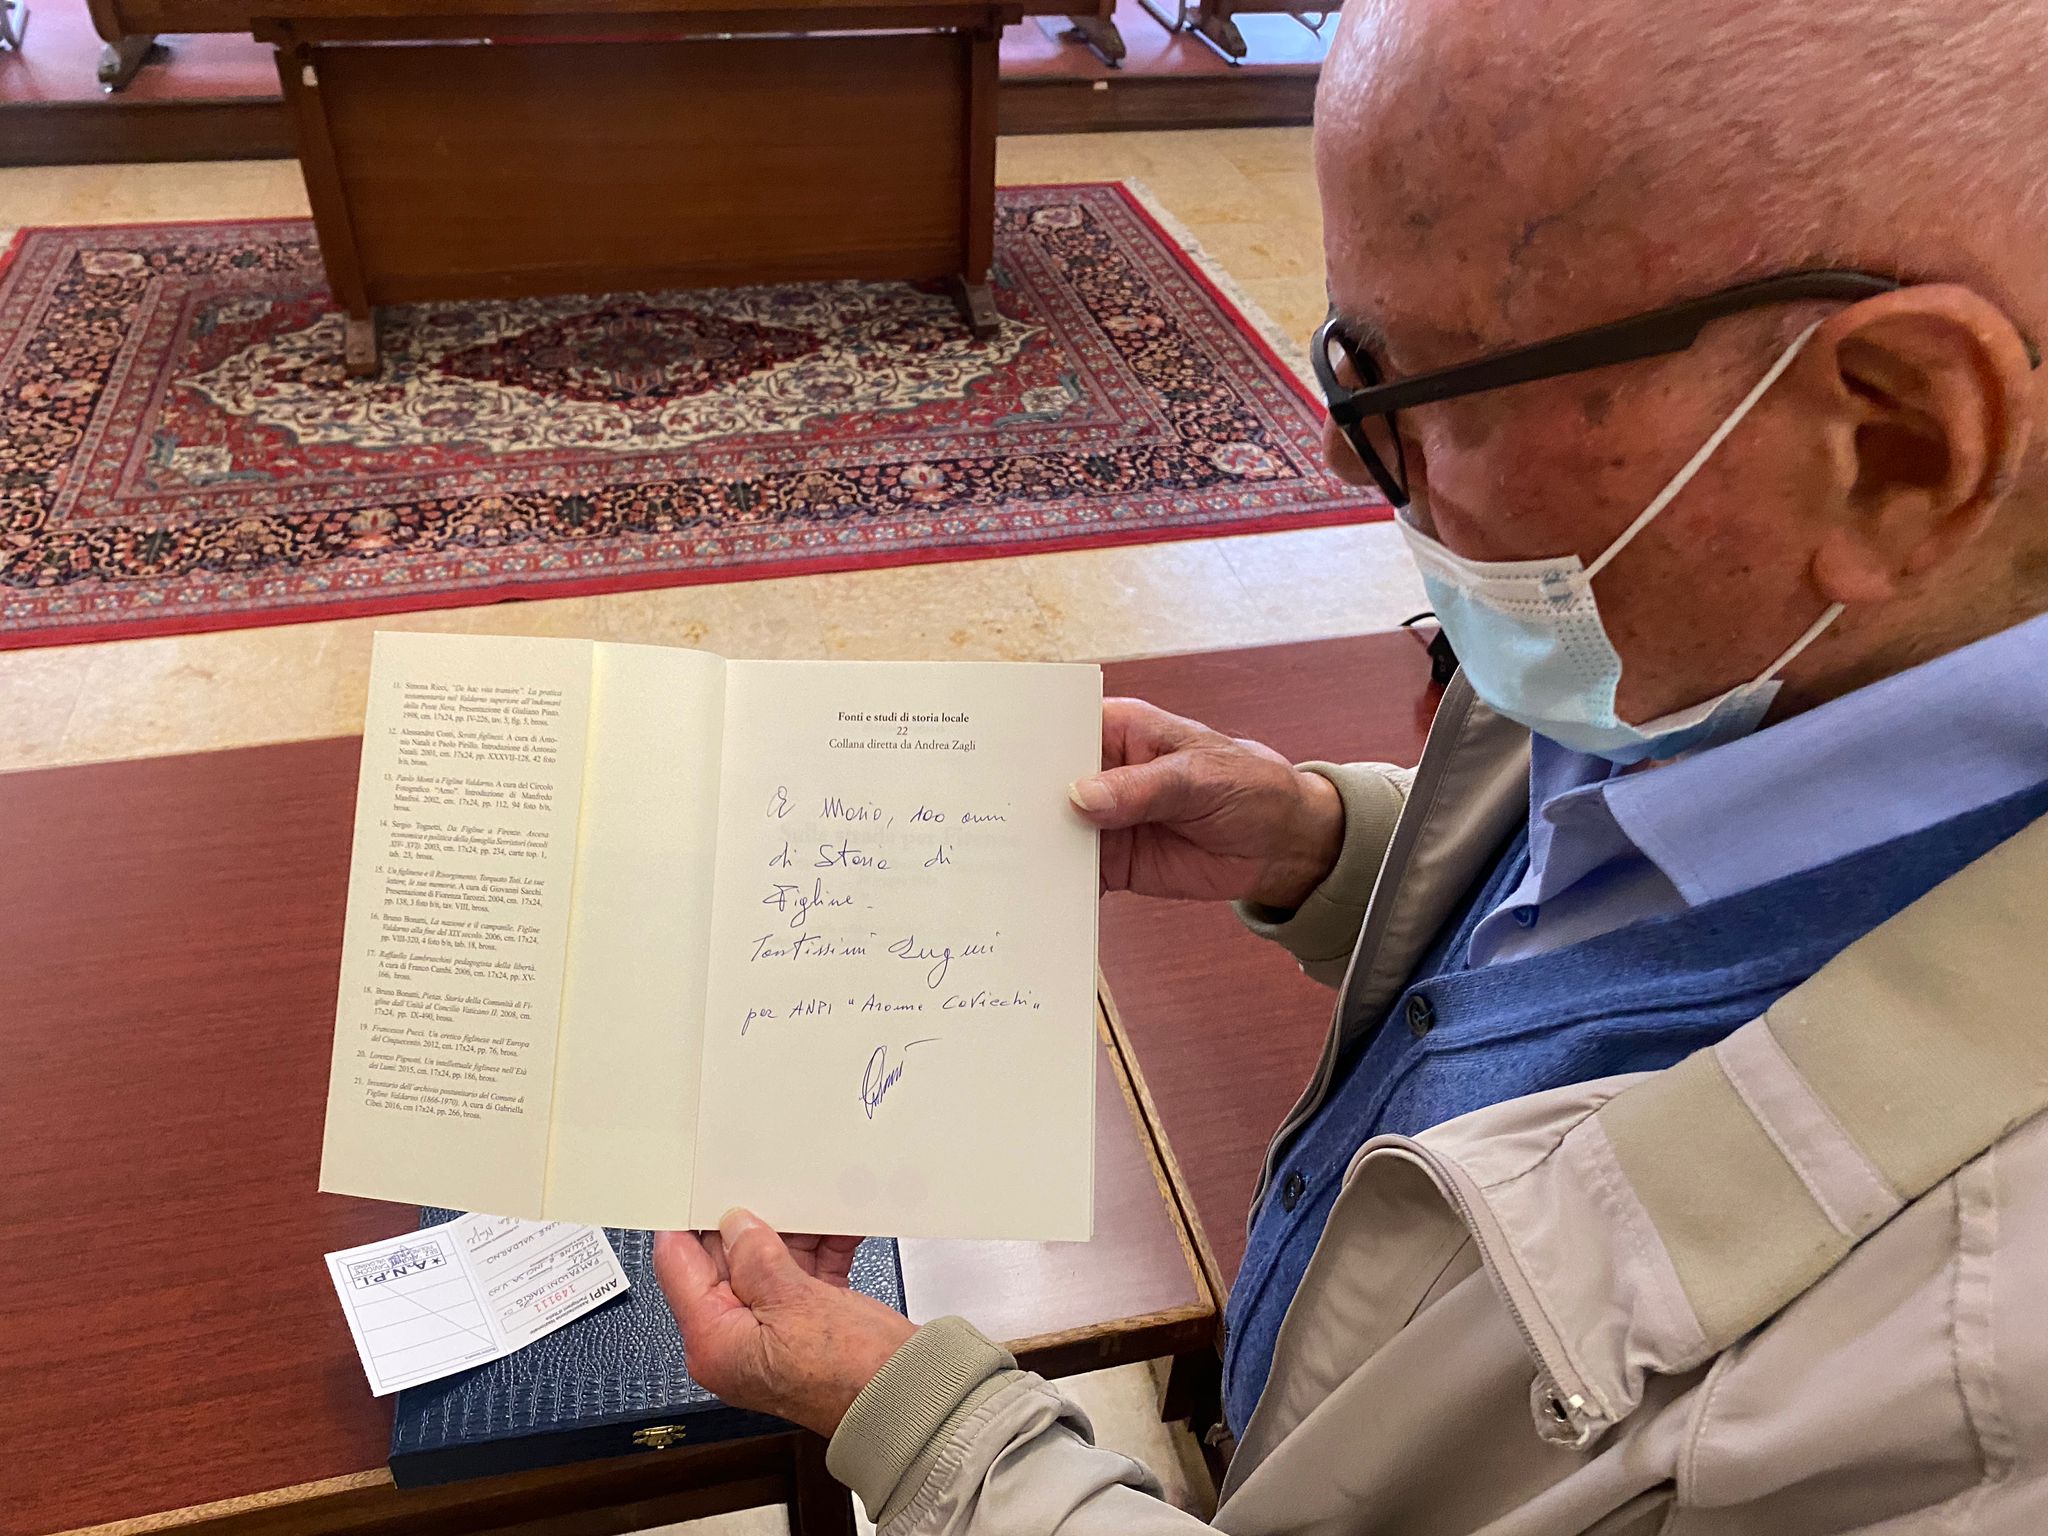 11. Simona Ricci, "De hac vita transire". La pratica
testamentaria nel Valdarno superiore all'indomani
della Peste Nera. Presentazione di Giuliano Pinto.
1998, cm. 17x24, pp. IV-226, tav. 5, fig. 5, bross.
12. Alessandro Conti, Scritti figlinesi. A cura di Anto-
nio Natali e Paolo Pirillo. Introduzione di Antonio
Natali. 2001, cm. 17x24, pp. XXXVII-128, 42 foto
b/n, bross.
13. Paolo Monti a Figline Valdarno. A cura del Circolo
Fotografico "Arno". Introduzione di Manfredo
Manfroi. 2002, cm. 17x24, pp. 112, 94 foto b/n,
bross.
14. Sergio Tognetti, Da Figline a Firenze. Ascesa
economica e politica della famiglia Serristori (secoli
XIV-XVI). 2003, cm. 17x24, pp. 234, carte top. 1,
tab. 23, bross.
15. Un figlinese e il Risorgimento. Torquato Toti. Le sue
lettere, le sue memorie. A cura di Giovanni Sacchi.
Presentazione di Fiorenza Tarozzi. 2004, cm. 17x24,
pp. 138, 3 foto b/n, tav. VIII, bross.
16. Bruno Bonatti, La nazione e il campanile. Figline
Valdarno alla fine del XIX secolo. 2006, cm. 17x24,
pp. VIII-320, 4 foto b/n, tab. 18, bross.
17. Raffaello Lambruschini pedagogista della libertà.
A cura di Franco Cambi. 2006, cm. 17x24, pp. XV-
166, bross.
18. Bruno Bonatti, Pietas. Storia della Comunità di Fi-
gline dall'Unità al Concilio Vaticano II. 2008, cm.
17x24, pp. IX-490, bross.
19. Francesco Pucci. Un eretico figlinese nell'Europa
del Cinquecento. 2012, cm. 17x24, pp. 76, bross.
20. Lorenzo Pignotti. Un intellettuale figlinese nell'Età
dei Lumi. 2015, cm. 17x24, pp. 186, bross.
21. Inventario dell'archivio postunitario del Comune di
Figline Valdarno (1866-1970). A cura di Gabriella
Cibei. 2016, cm 17x24, pp. 266, bross.
Fonti e studi di storia locale
22
Collana diretta da Andrea Zagli
A Mario, 100 anni
di Storia di
Figline.
Tantissimi Auguri
per ANPI "Aronne Cavicchi"
ANPI Associazione Nazionale
Partigiani d'Italia
149111
PAMPALONI MARIO
1921
FIGLINE E INCISA V.NO
FIGLINE VALDARNO
A.N.P.I.
SEZ. ARONNE CAVICCHI